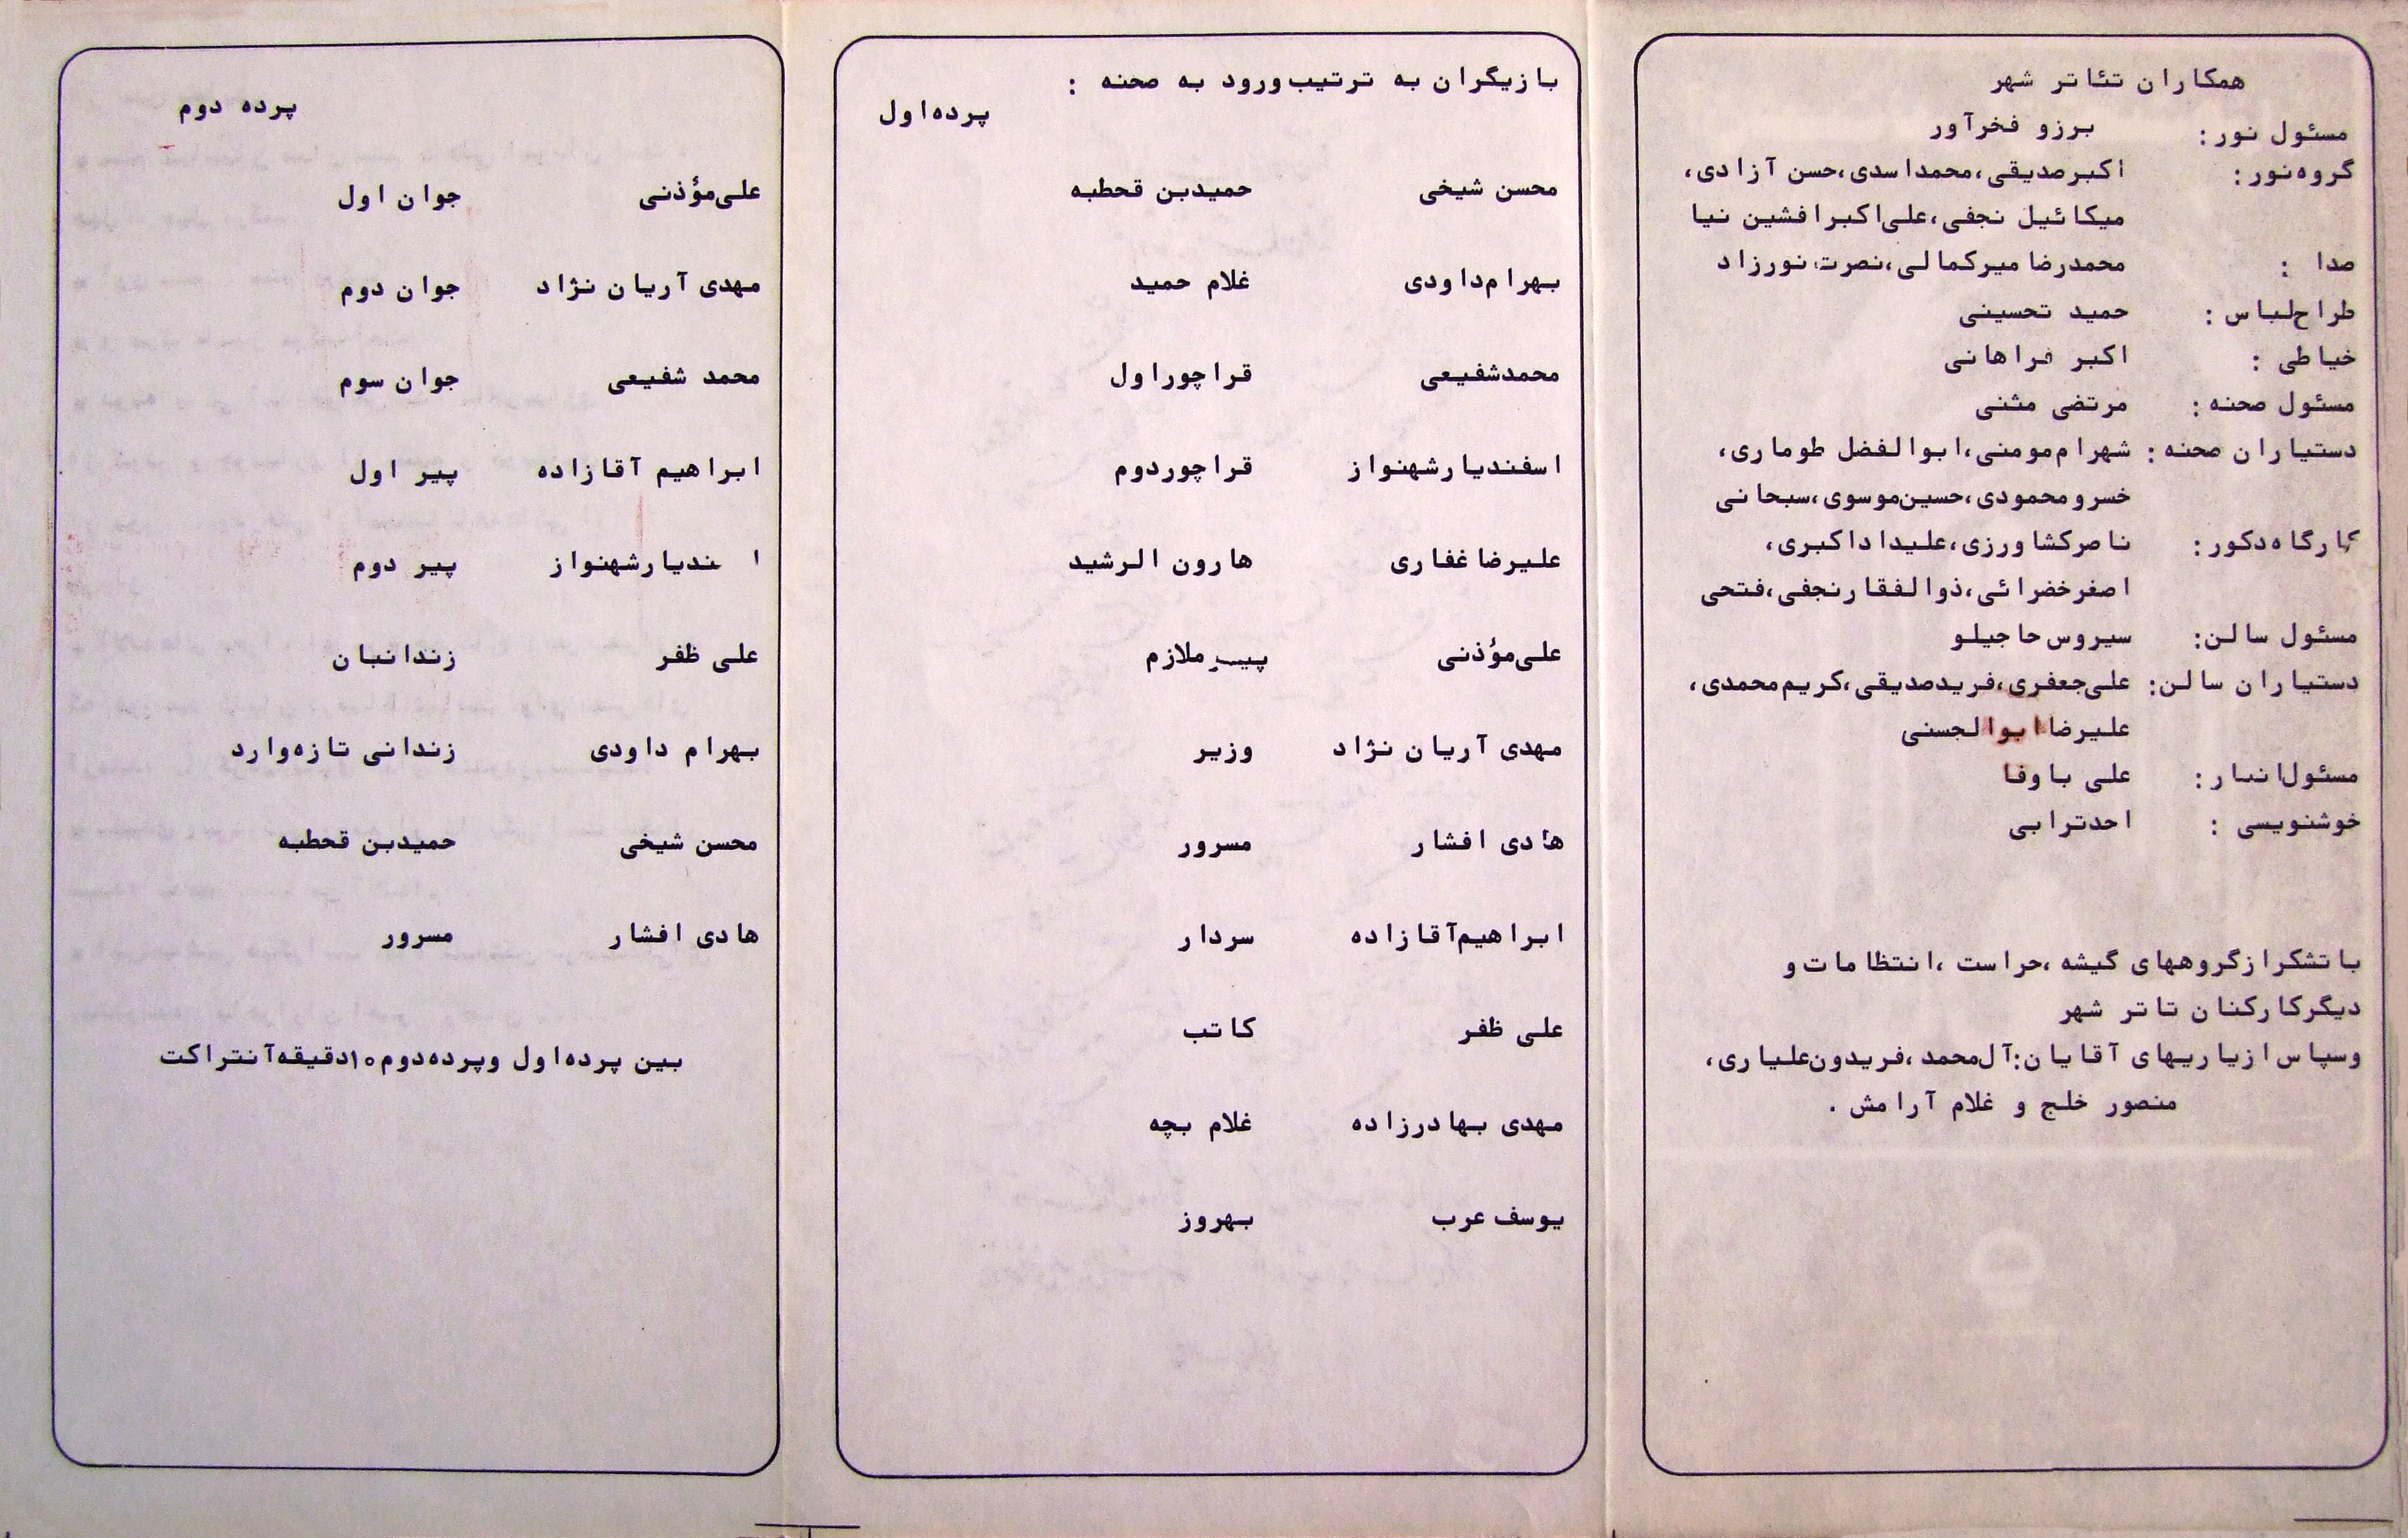 همکاران تئاتر شهر
مسئول نور: برزو فخرآور
گروه نور: اکبرصدیقی، محمداسدی، حسن آزادی،
میکائیل نجفی، علی‌اکبرافشین نیا
صدا : محمدرضا میرکمالی، نصرت نورزاد
طراح‌لباس : حمید تحسینی
خیاطی : اکبر فراهانی
مسئول صحنه : مرتضی مثنی
دستیاران صحنه : شهرام‌مومنی، ابوالفضل طوماری،
خسرومحمودی، حسین‌موسوی، سبحانی
کارگاه‌دکور: ناصرکشاورزی، علیداداکبری،
اصغرخضرائی، ذوالفقارنجفی، فتحی
مسئول سالن: سیروس حاجیلو
دستیاران سالن: علی‌جعفری، فریدصدیقی، کریم‌محمدی،
علیرضا ابوالحسنی
مسئول‌انبار : علی باوفا
خوشنویسی : احدترابی
باتشکرازگروههای گیشه، حراست، انتظامات و
دیگرکارکنان تاتر شهر
وسپاس‌ازیاریهای آقایان: آل‌محمد، فریدون‌علیاری،
منصور خلج و غلام آرامش .
بازیگران به ترتیب‌ورود به صحنه :
پرده‌اول
محسن شیخی حمیدبن قحطبه
بهرام‌داودی غلام حمید
محمدشفیعی قراچوراول
اسفندیارشهنواز قراچوردوم
علیرضا غفاری هارون الرشید
علی‌مؤذنی پیر ملازم
مهدی آریان نژاد وزیر
هادی افشار مسرور
ابراهیم‌آقازاده سردار
علی ظفر کاتب
مهدی بهادرزاده غلام بچه
یوسف عرب بهروز
پرده دوم
علی‌مؤذنی جوان اول
مهدی آریان نژاد جوان دوم
محمد شفیعی جوان سوم
ابراهیم آقازاده پیر اول
ا ندیارشهنواز پیر دوم
علی ظفر زندانبان
بهرام داودی زندانی تازه‌وارد
محسن شیخی حمیدبن قحطبه
هادی افشار مسرور
بین پرده‌اول وپرده‌دوم۱۰دقیقه‌آنتراکت